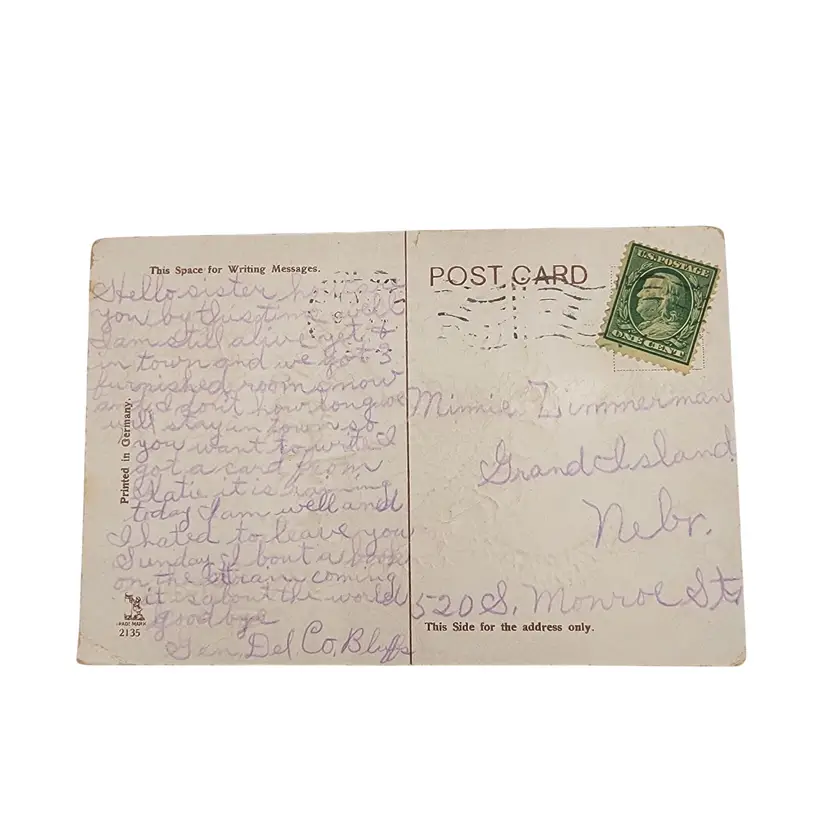 This Space for Writing Messages.
Hello sister how are
you by this time well
I am still alive yet &
in town and we got 3
furnished rooms now
and I don't how long we
will stay in town so
you want to write I
got a card from
Katie it is raining
today I am well and
I hated to leave you
Sunday I bout a book
on the train coming
it is about the world
good bye
Gen. Del. Co. Bluffs
Printed in Germany.
TRADE MARK
2135
POST CARD
U.S. POSTAGE
ONE CENT
Minnie Zimmerman
Grand Island
Nebr.
520 S. Monroe St.
This Side for the address only.